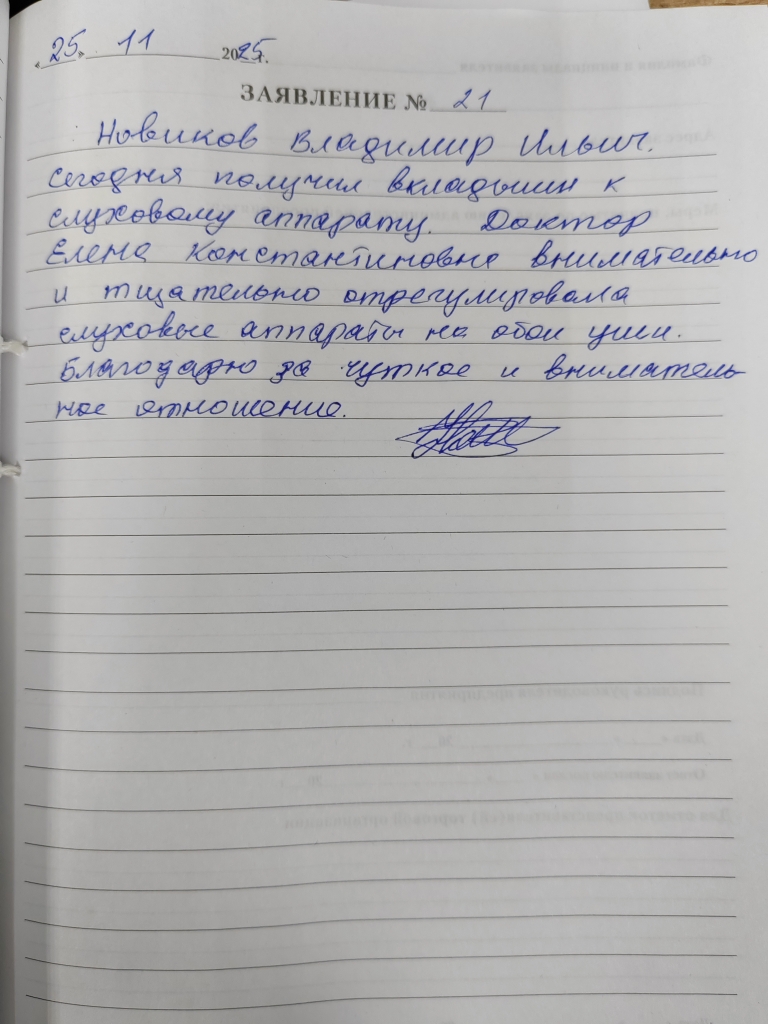 « 25 » 11 2025 г.
ЗАЯВЛЕНИЕ № 21
Новиков Владимир Ильич.
Сегодня получил вкладыши к
слуховому аппарату. Доктор
Елена Константиновна внимательно
и тщательно отрегулировала
слуховые аппараты на обои уши.
Благодарю за чуткое и вниматель-
ное отношение.